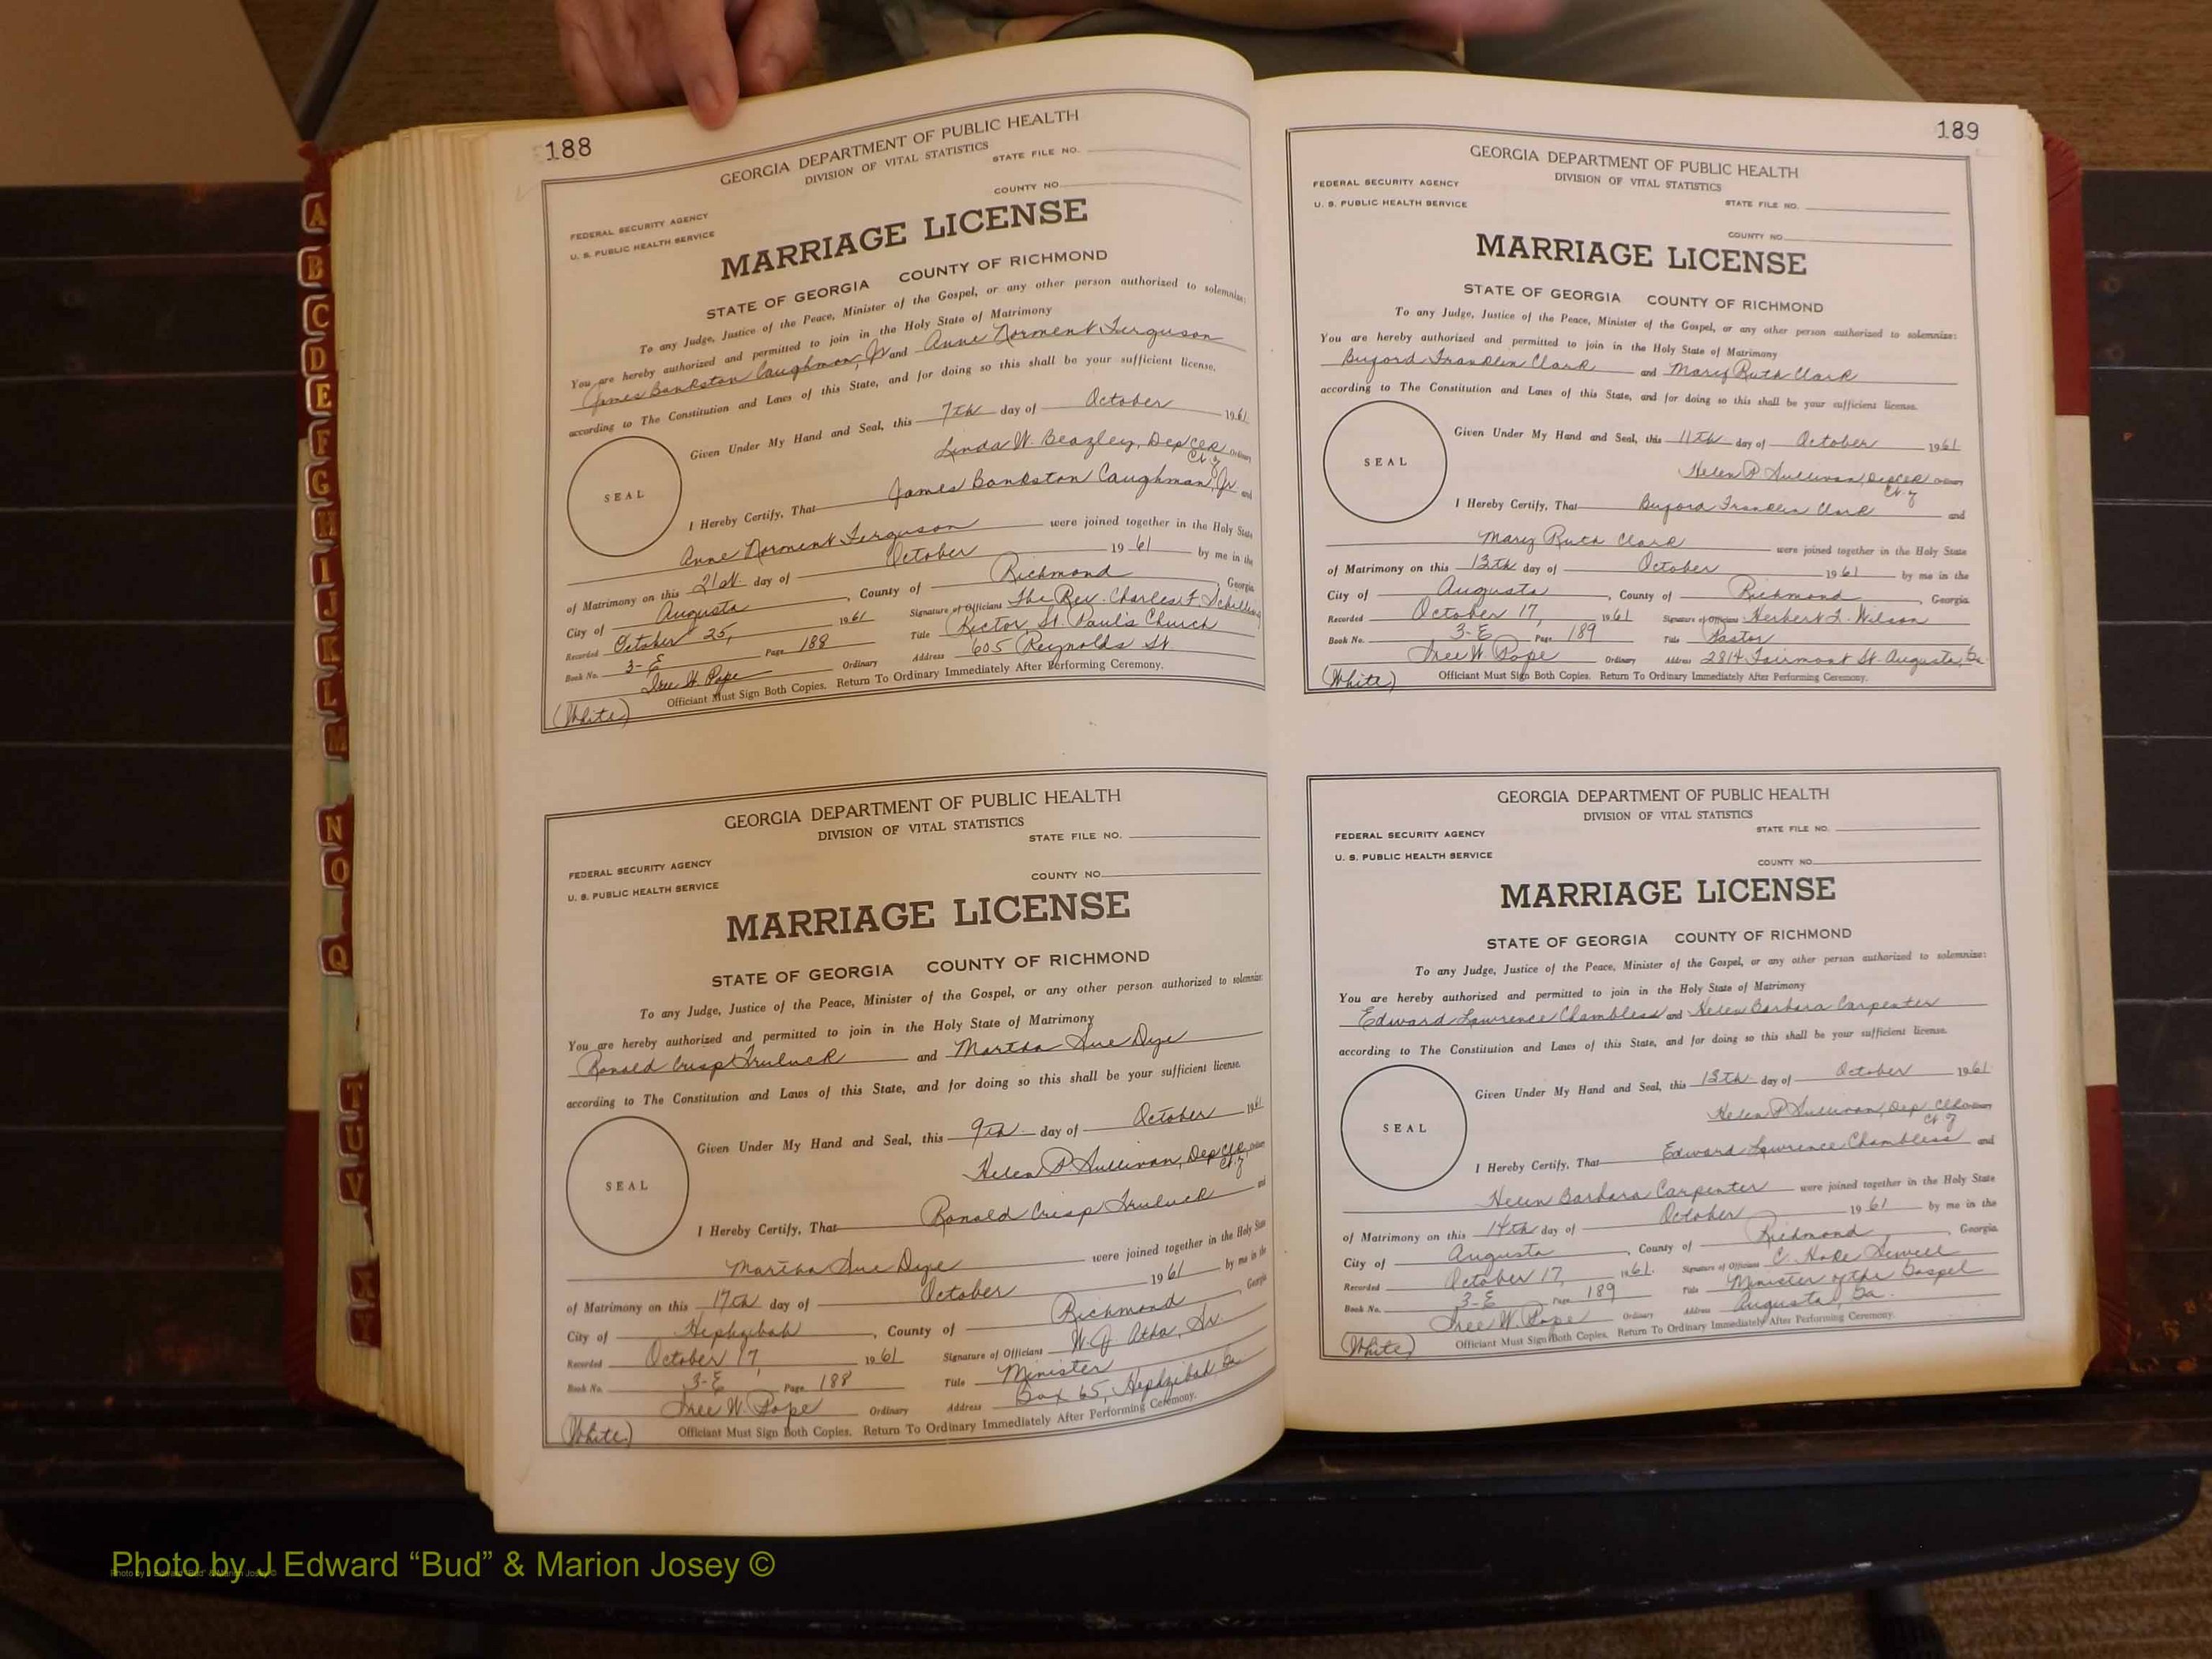 188
GEORGIA DEPARTMENT OF PUBLIC HEALTH
DIVISION OF VITAL STATISTICS
STATE FILE NO.
COUNTY NO.
FEDERAL SECURITY AGENCY
U. S. PUBLIC HEALTH SERVICE
MARRIAGE LICENSE
STATE OF GEORGIA COUNTY OF RICHMOND
To any Judge, Justice of the Peace, Minister of the Gospel, or any other person authorized to solemnize:
You are hereby authorized and permitted to join in the Holy State of Matrimony
James Bankston Caughman, Jr and Anne Norment Ferguson
according to The Constitution and Laws of this State, and for doing so this shall be your sufficient license.
Given Under My Hand and Seal, this 7th day of October 1961
Linda W. Beazley, Dep Clk Ordinary
SEAL
I Hereby Certify, That James Bankston Caughman, Jr and
Anne Norment Ferguson were joined together in the Holy State
of Matrimony on this 21st day of October 1961 by me in the
City of Augusta, County of Richmond, Georgia
Recorded October 25, 1961 Signature of Officiant The Rev. Charles F. Schilling
Book No. 3-E Page 188 Title Rector St. Paul's Church
Ordinary Address 605 Reynolds St.
Officiant Must Sign Both Copies. Return To Ordinary Immediately After Performing Ceremony.
(White)
GEORGIA DEPARTMENT OF PUBLIC HEALTH
DIVISION OF VITAL STATISTICS
STATE FILE NO.
FEDERAL SECURITY AGENCY
COUNTY NO.
U. S. PUBLIC HEALTH SERVICE
MARRIAGE LICENSE
STATE OF GEORGIA COUNTY OF RICHMOND
To any Judge, Justice of the Peace, Minister of the Gospel, or any other person authorized to solemnize:
You are hereby authorized and permitted to join in the Holy State of Matrimony
Ronald Crisp Truluck and Martha Sue Dye
according to The Constitution and Laws of this State, and for doing so this shall be your sufficient license.
Given Under My Hand and Seal, this 9th day of October 1961
Helen P. Sullivan, Dep Clk Ordinary
SEAL
I Hereby Certify, That Ronald Crisp Truluck and
Martha Sue Dye were joined together in the Holy State
of Matrimony on this 17th day of October 1961 by me in the
City of Hephzibah, County of Richmond Georgia
Recorded October 17, 1961 Signature of Officiant W. J. Atha, Sr.
Book No. 3-E Page 188 Title Minister
Ordinary Address Box 65, Hephzibah Ga
(White) Officiant Must Sign Both Copies. Return To Ordinary Immediately After Performing Ceremony.
189
GEORGIA DEPARTMENT OF PUBLIC HEALTH
DIVISION OF VITAL STATISTICS
FEDERAL SECURITY AGENCY
U. S. PUBLIC HEALTH SERVICE
STATE FILE NO.
COUNTY NO.
MARRIAGE LICENSE
STATE OF GEORGIA COUNTY OF RICHMOND
To any Judge, Justice of the Peace, Minister of the Gospel, or any other person authorized to solemnize:
You are hereby authorized and permitted to join in the Holy State of Matrimony
Buford Franklin Clark and Mary Ruth Clark
according to The Constitution and Laws of this State, and for doing so this shall be your sufficient license.
Given Under My Hand and Seal, this 11th day of October 1961
Helen P. Sullivan, Dep Clk Ordinary
SEAL
I Hereby Certify, That Buford Franklin Clark and
Mary Ruth Clark were joined together in the Holy State
of Matrimony on this 13th day of October 1961 by me in the
City of Augusta, County of Richmond, Georgia
Recorded October 17, 1961 Signature of Officiant Herbert L. Wilson
Book No. 3-E Page 189 Title Pastor
Ordinary Address 2814 Fairmont St. Augusta, Ga
(White) Officiant Must Sign Both Copies. Return To Ordinary Immediately After Performing Ceremony.
GEORGIA DEPARTMENT OF PUBLIC HEALTH
DIVISION OF VITAL STATISTICS
FEDERAL SECURITY AGENCY
STATE FILE NO.
U. S. PUBLIC HEALTH SERVICE
COUNTY NO.
MARRIAGE LICENSE
STATE OF GEORGIA COUNTY OF RICHMOND
To any Judge, Justice of the Peace, Minister of the Gospel, or any other person authorized to solemnize:
You are hereby authorized and permitted to join in the Holy State of Matrimony
Edward Lawrence Chambless and Helen Barbara Carpenter
according to The Constitution and Laws of this State, and for doing so this shall be your sufficient license.
Given Under My Hand and Seal, this 13th day of October 1961
Helen P. Sullivan, Dep Clk Ordinary
SEAL
I Hereby Certify, That Edward Lawrence Chambless and
Helen Barbara Carpenter were joined together in the Holy State
of Matrimony on this 14th day of October 1961 by me in the
City of Augusta, County of Richmond, Georgia
Recorded October 17, 1961. Signature of Officiant C. Hope Sewell
Book No. 3-E Page 189 Title Minister of the Gospel
Ordinary Address Augusta, Ga.
(White) Officiant Must Sign Both Copies. Return To Ordinary Immediately After Performing Ceremony.
A
B
C
D
E
F
G
H
I
J
K
L
M
N
O
Q
T
U
V
X
Y
Photo by J Edward “Bud” & Marion Josey ©
Photo by J Edward “Bud” & Marion Josey ©